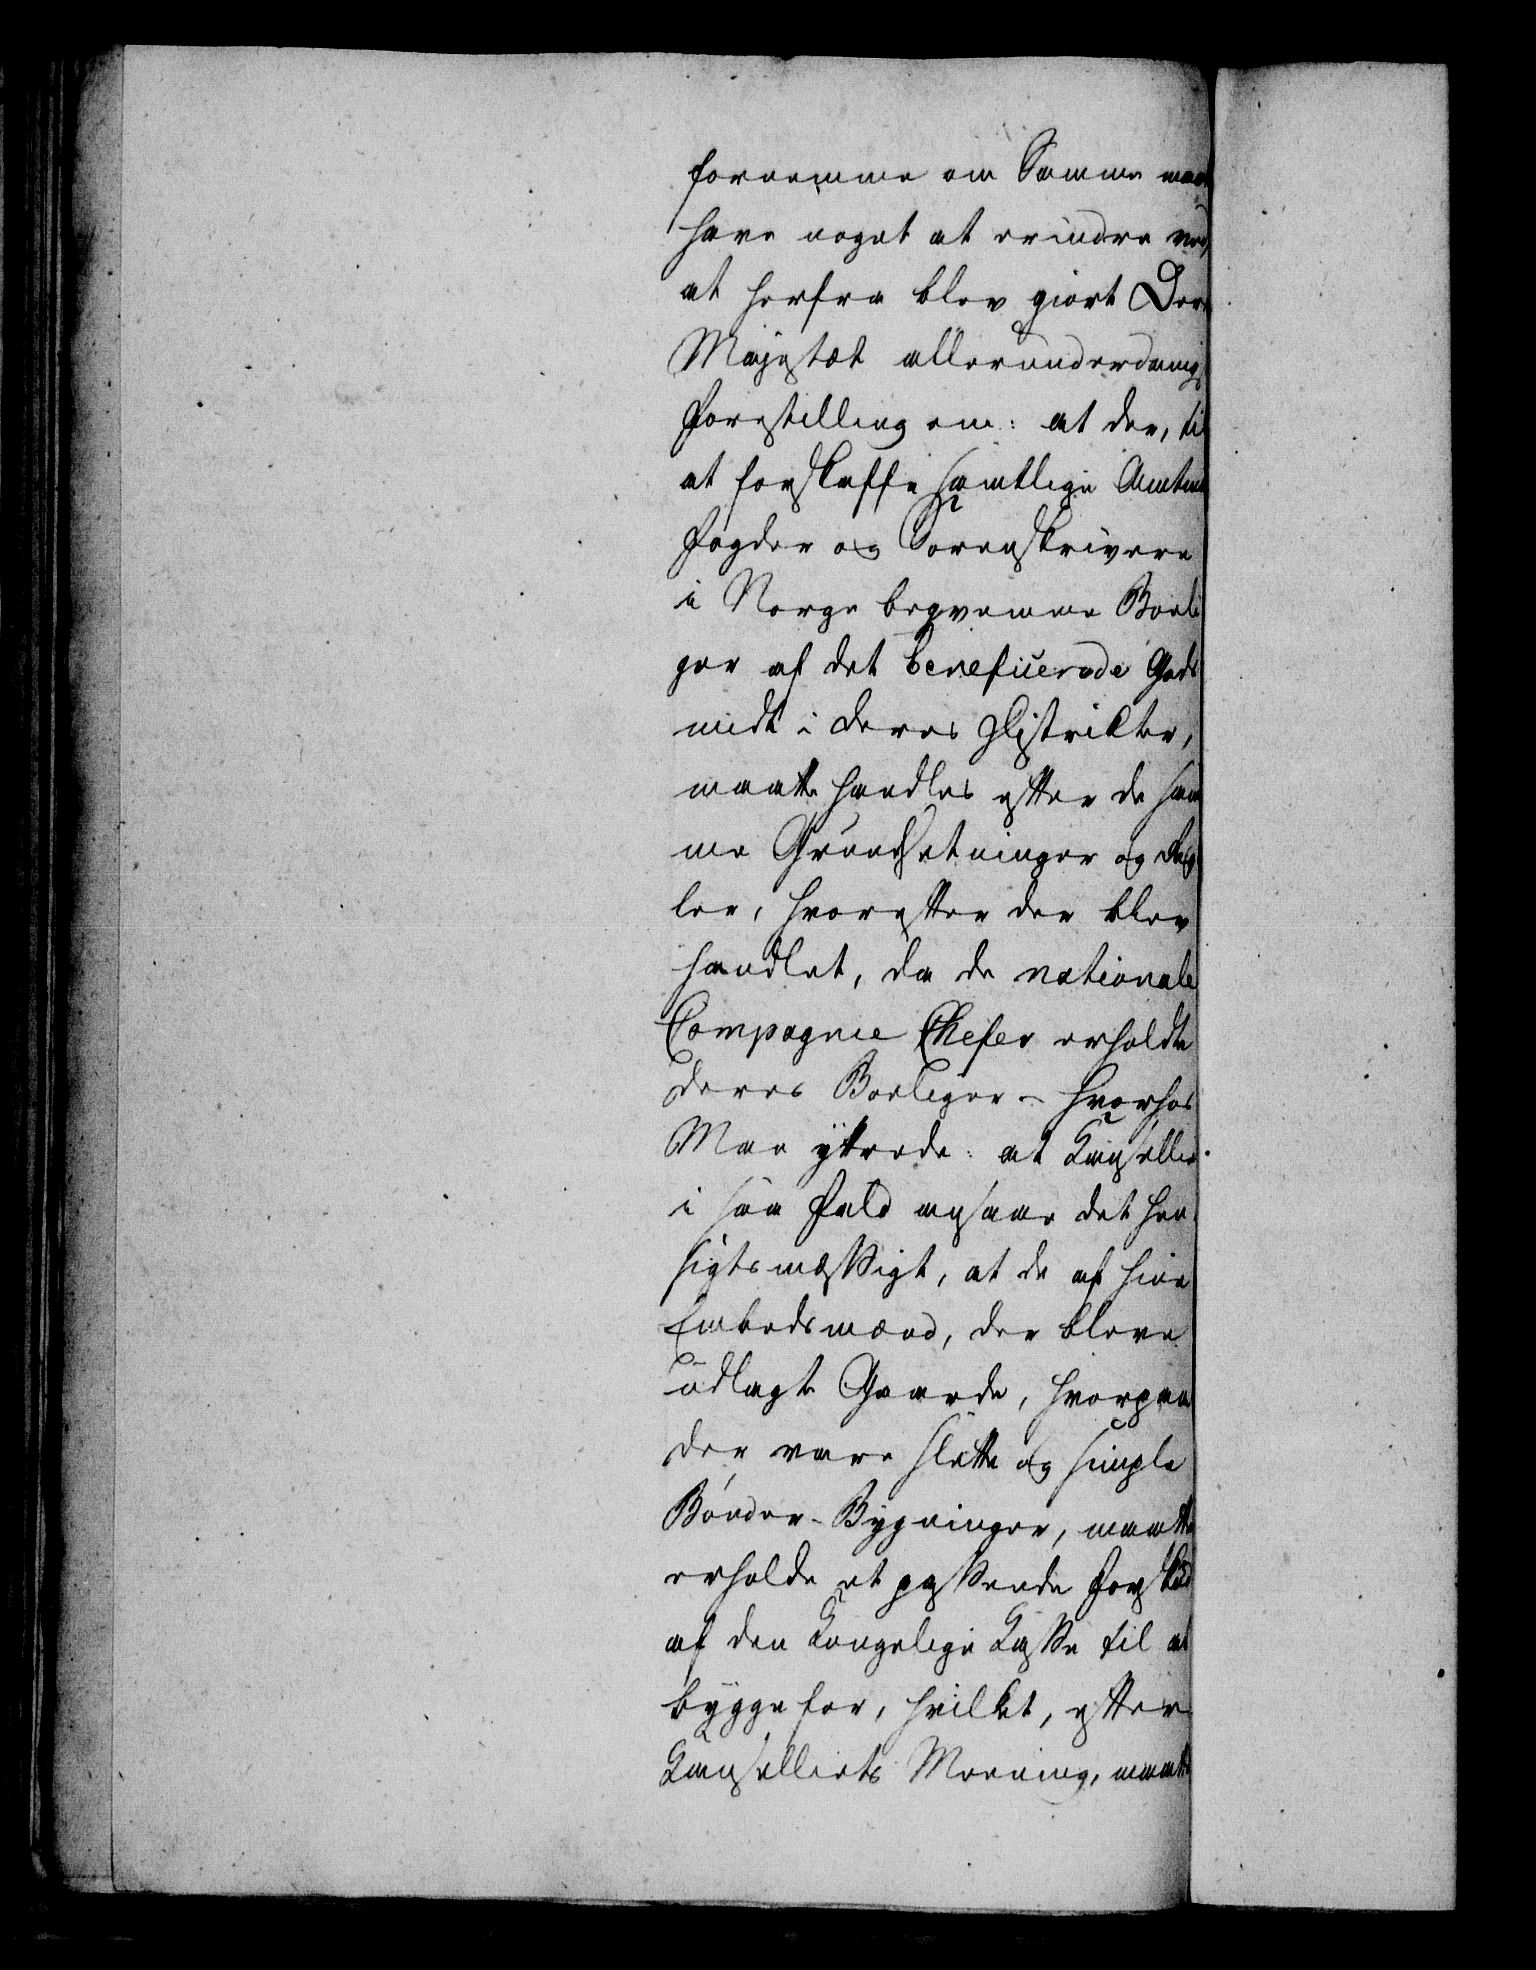 fornemme om Samme maatte
have noget at erindre ved,
at herfra blev giort Deres
Majestæt allerunderdanigst
Forestilling om: at der, til
at forskaffe samtlige Amtmænd
Fogder og Sorenskrivere
i Norge beqvemme Boeli
ger af det beneficerede Gods
midt i deres Distrikter,
maatte handles efter de sam
me Grundsetninger og Reg
ler, hvorefter der blev
handlet, da de nationale
Compagnie Chefer erholdte
deres Boeliger – hvorhos
Man yttrede: at Kancelliet
i saa Fald ansaae det hen
sigtsmæssigt, at de af hine
Embedsmænd, der bleve
udlagte Gaarde, hvorpaa
der vare slette og simple
Bønder-Bygninger, maatte
erholde et passende Forskud
af den Kongelige Kasse til at
bygge for, hvilket, efter
Kancelliets Meening, maatte